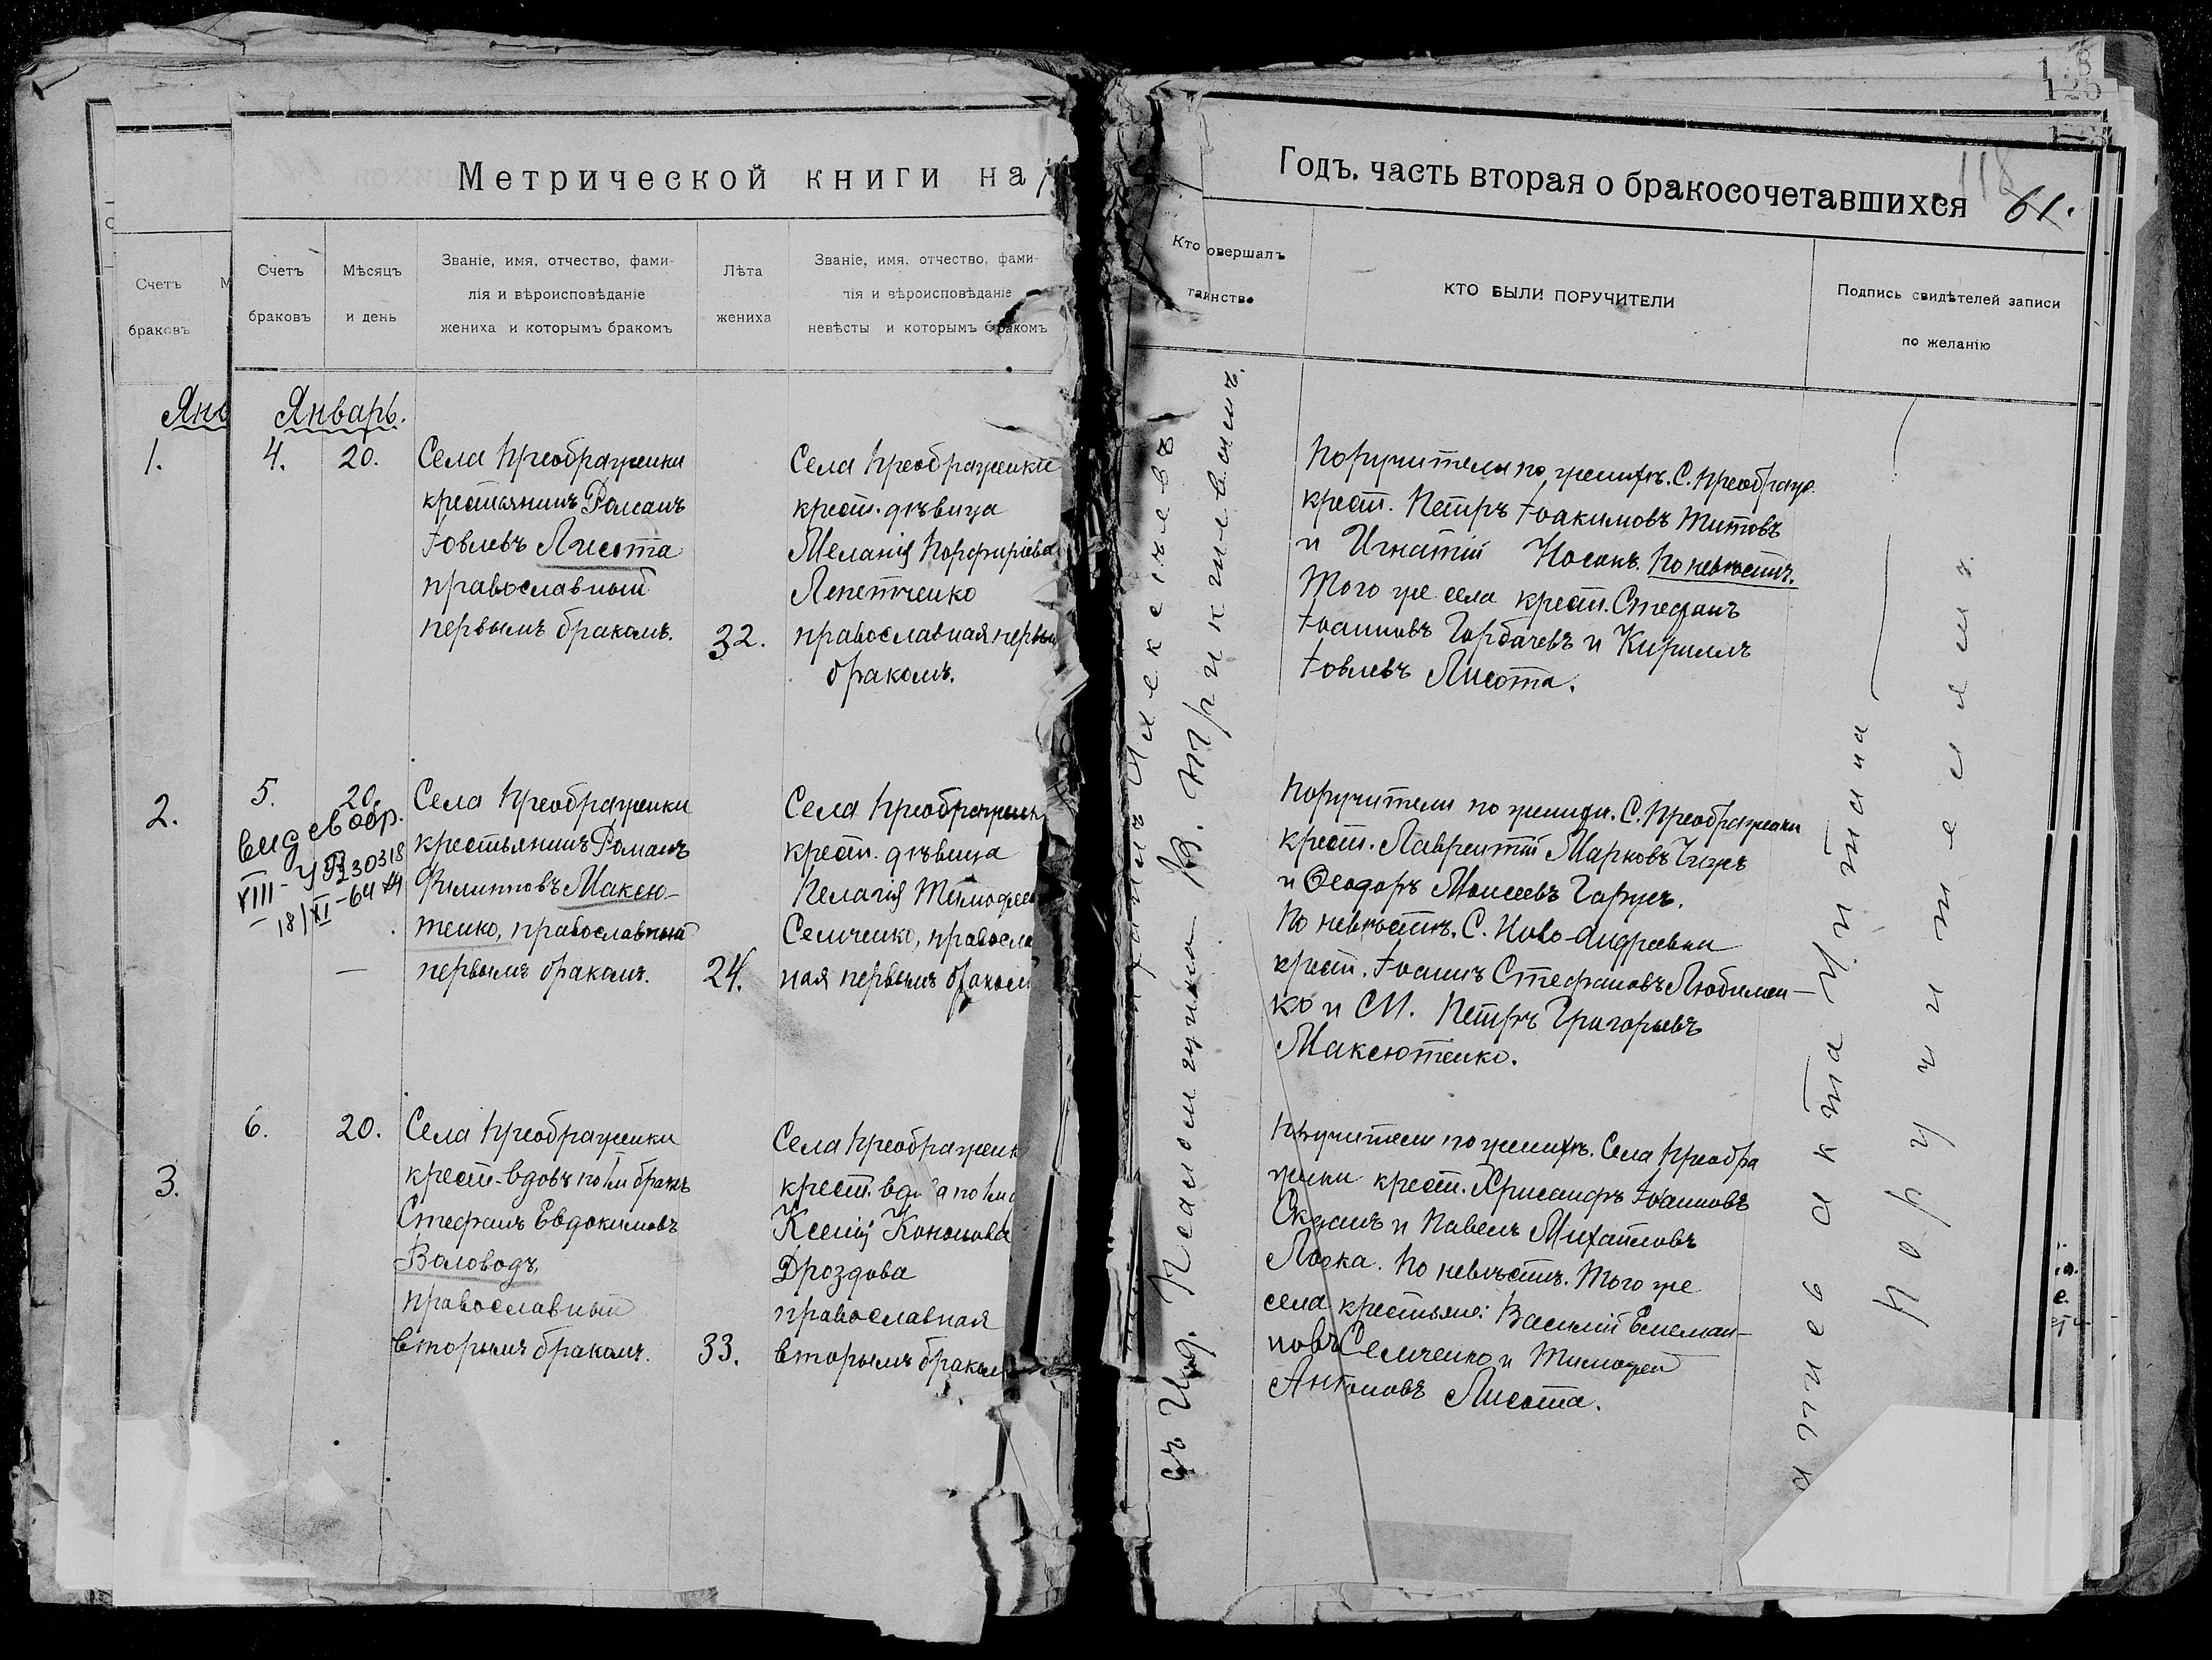 Метрической книги на
Счетъ
браковъ
Счетъ
браковъ
Мѣсяцъ
и день
Званіе, имя, отчество, фами-
лія и вѣроисповѣданіе
жениха и которымъ бракомъ
Лѣта
жениха
Званіе, имя, отчество, фами-
лія и вѣроисповѣданіе
невѣсты и которымъ бракомъ
Янв
1.
2.
3.
Январь.
4.
20.
Села Преображенки
крестьянинъ Романъ
Іовлевъ Лисота
православный
первымъ бракомъ.
32.
Села Преображенки
крест. дѣвица
Меланія Порфиріева
Лепетченко
православная первы
бракомъ.
5.
20.
XIII - УЯ 230318
- 18/XI - 64
Села Преображенки
крестьянинъ Романъ
Филипповъ Максю-
тенко, православный
первымъ бракомъ.
24.
Села Преображенк
крест. дѣвица
Пелагія Тимофеев
Семченко, правосла
ная первымъ браком
6.
20.
Села Преображенки
крест. вдовъ по бракѣ
Стефанъ Евдокимовъ
Воловодъ,
православный
вторымъ бракомъ.
33.
Села Преображенк
крест. вдова по
Ксенія Кононова
Дроздова
православная
вторымъ браком
Годъ, часть вторая о бракосочетавшихся
118
61.
Кто совершалъ
таинство
КТО БЫЛИ ПОРУЧИТЕЛИ
Подпись свидѣтелей записи
по желанію
Поручители по женихѣ. С. Преображ.
крест. Петръ Іоакимовъ Титовъ
и Игнатій Носокъ. По невѣстѣ.
Того же села крест. Стефанъ
Іоанновъ Горбачевъ и Кириллъ
Іовлевъ Лисота.
Поручители по женихѣ. С. Преображенки
крест. Лаврентій Марковъ
и Ѳеодоръ Моисеевъ Гарусъ.
По невѣстѣ. С. Ново-Андреевки
крест. Іоаннъ Стефановъ Любимен-
ко и СМ. Петръ Григорьевъ
Максютенко.
Поручители по женихѣ. Села Преобра
женки крест. Хрисанфъ Іоанновъ
и Павелъ Михайловъ
По невѣстѣ. Того же
села крестьяне: Василій Емельян-
новъ Семченко и Тимофей
Антоновъ Лисота.
Алексѣевъ
съ И.д. Псаломщика В. Тринклевымъ.
акта
Поручителямъ